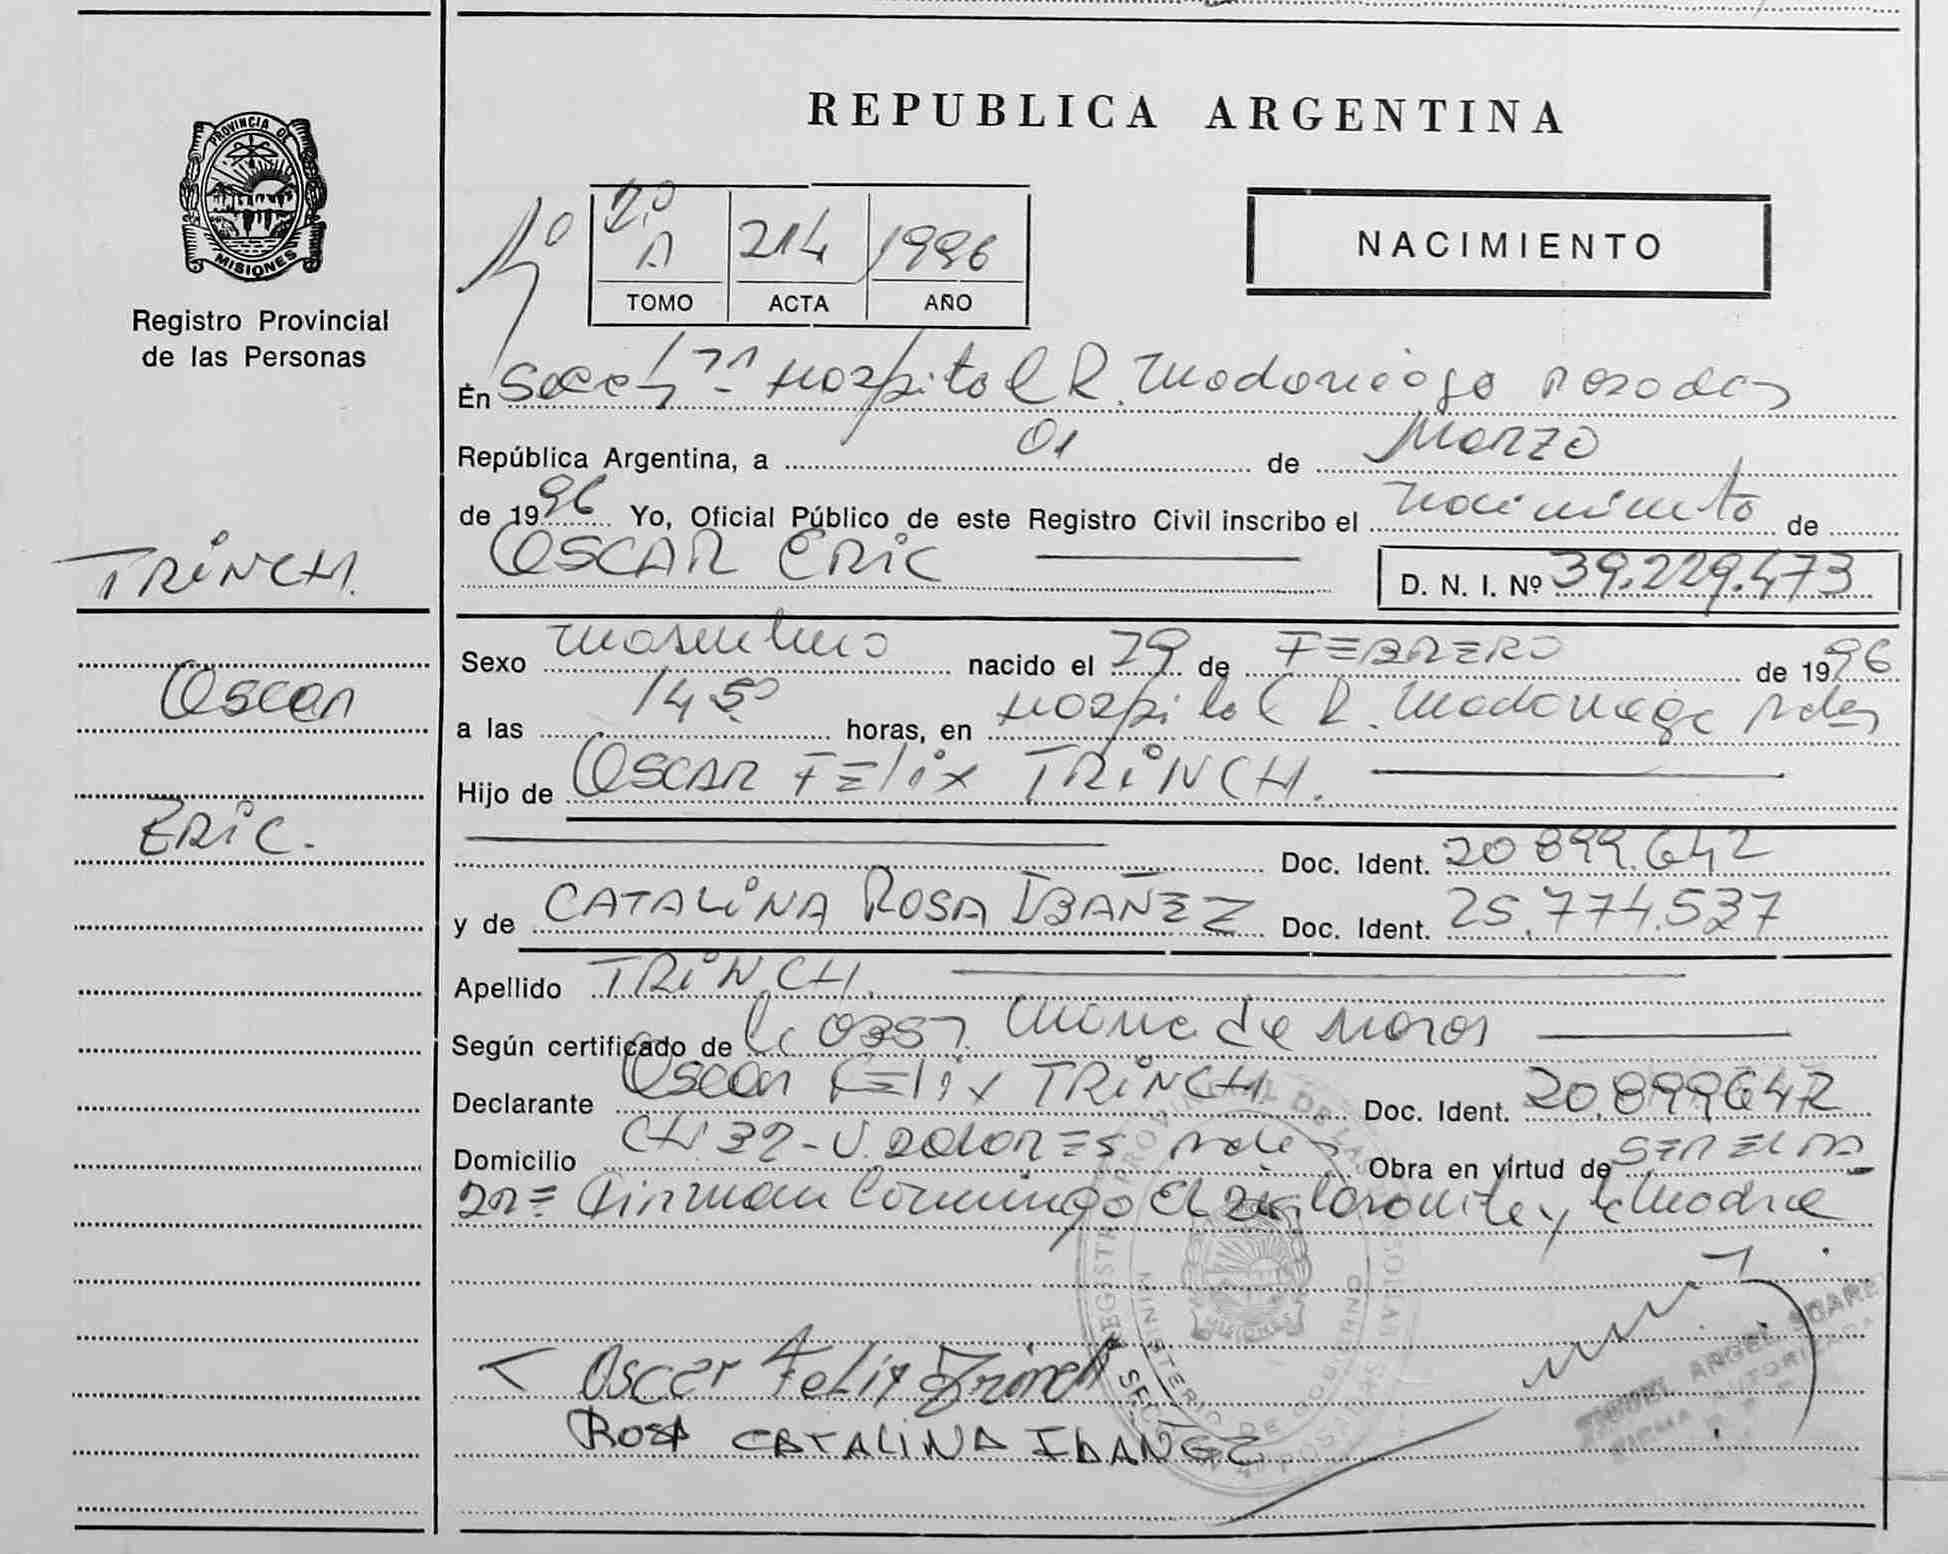 PROVINCIA DE
MISIONES
Registro Provincial
de las Personas
TRINCH.
Oscar
ERIC.
REPUBLICA ARGENTINA
NACIMIENTO
1º
2º
A 214 1996
TOMO ACTA AÑO
En Secc 7ª Hospital R. Madariaga Posadas
República Argentina, a 01 de Marzo
de 1996 Yo, Oficial Público de este Registro Civil inscribo el nacimiento de
OSCAR ERIC
D. N. I. Nº 39.229.473
Sexo masculino nacido el 29 de FEBRERO de 1996
a las 14 50 horas, en Hospital R. Madariaga Pdas
Hijo de OSCAR FELIX TRINCH.
Doc. Ident. 20 899.642
y de CATALINA ROSA IBAÑEZ Doc. Ident. 25.774.537
Apellido TRINCH.
Según certificado de la OBST. Maria de
Declarante Oscar FELIX TRINCH Doc. Ident. 20.899642
Domicilio CH 32 - V. DOLORES Pdas Obra en virtud de SER EL PA
DRE Firman conmigo El declarante y la Madre
Oscar Felix Trinch
ROSA CATALINA IBAÑEZ
REGISTRO PROVINCIAL DE LAS
MINISTERIO DE GOBIERNO
MISIONES
POSADAS
ANGEL
FIRMA AUTORIZADA